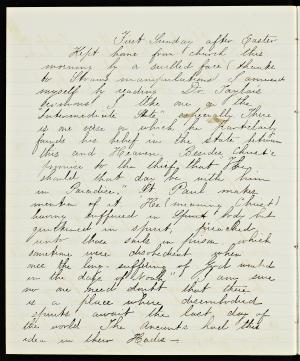 First Sunday after Easter
Kept home from church this
morning by a swelled face (thanks
to manipulations) I amused
myself by reading Dr. Taylor's
sermons I like me on the
Intermediate State" especially There
is one verse on which he particularly
founds his belief in the state between
this and Heaven. Besides Christ's
promise to the thief, that "He
should that day be with him
in Paradise," St. Paul makes
mention of it "He (meaning Christ)
having suffered in body but
quickened in spirit, preached
unto those souls in prison which
sometime were disobedient when
once the long-suffering of God waited
in the days of Noah," I am sure
no one need doubt that there
is a place where disembodied
spirits await the last day of
the world. The Ancients had this
idea in their Hades —